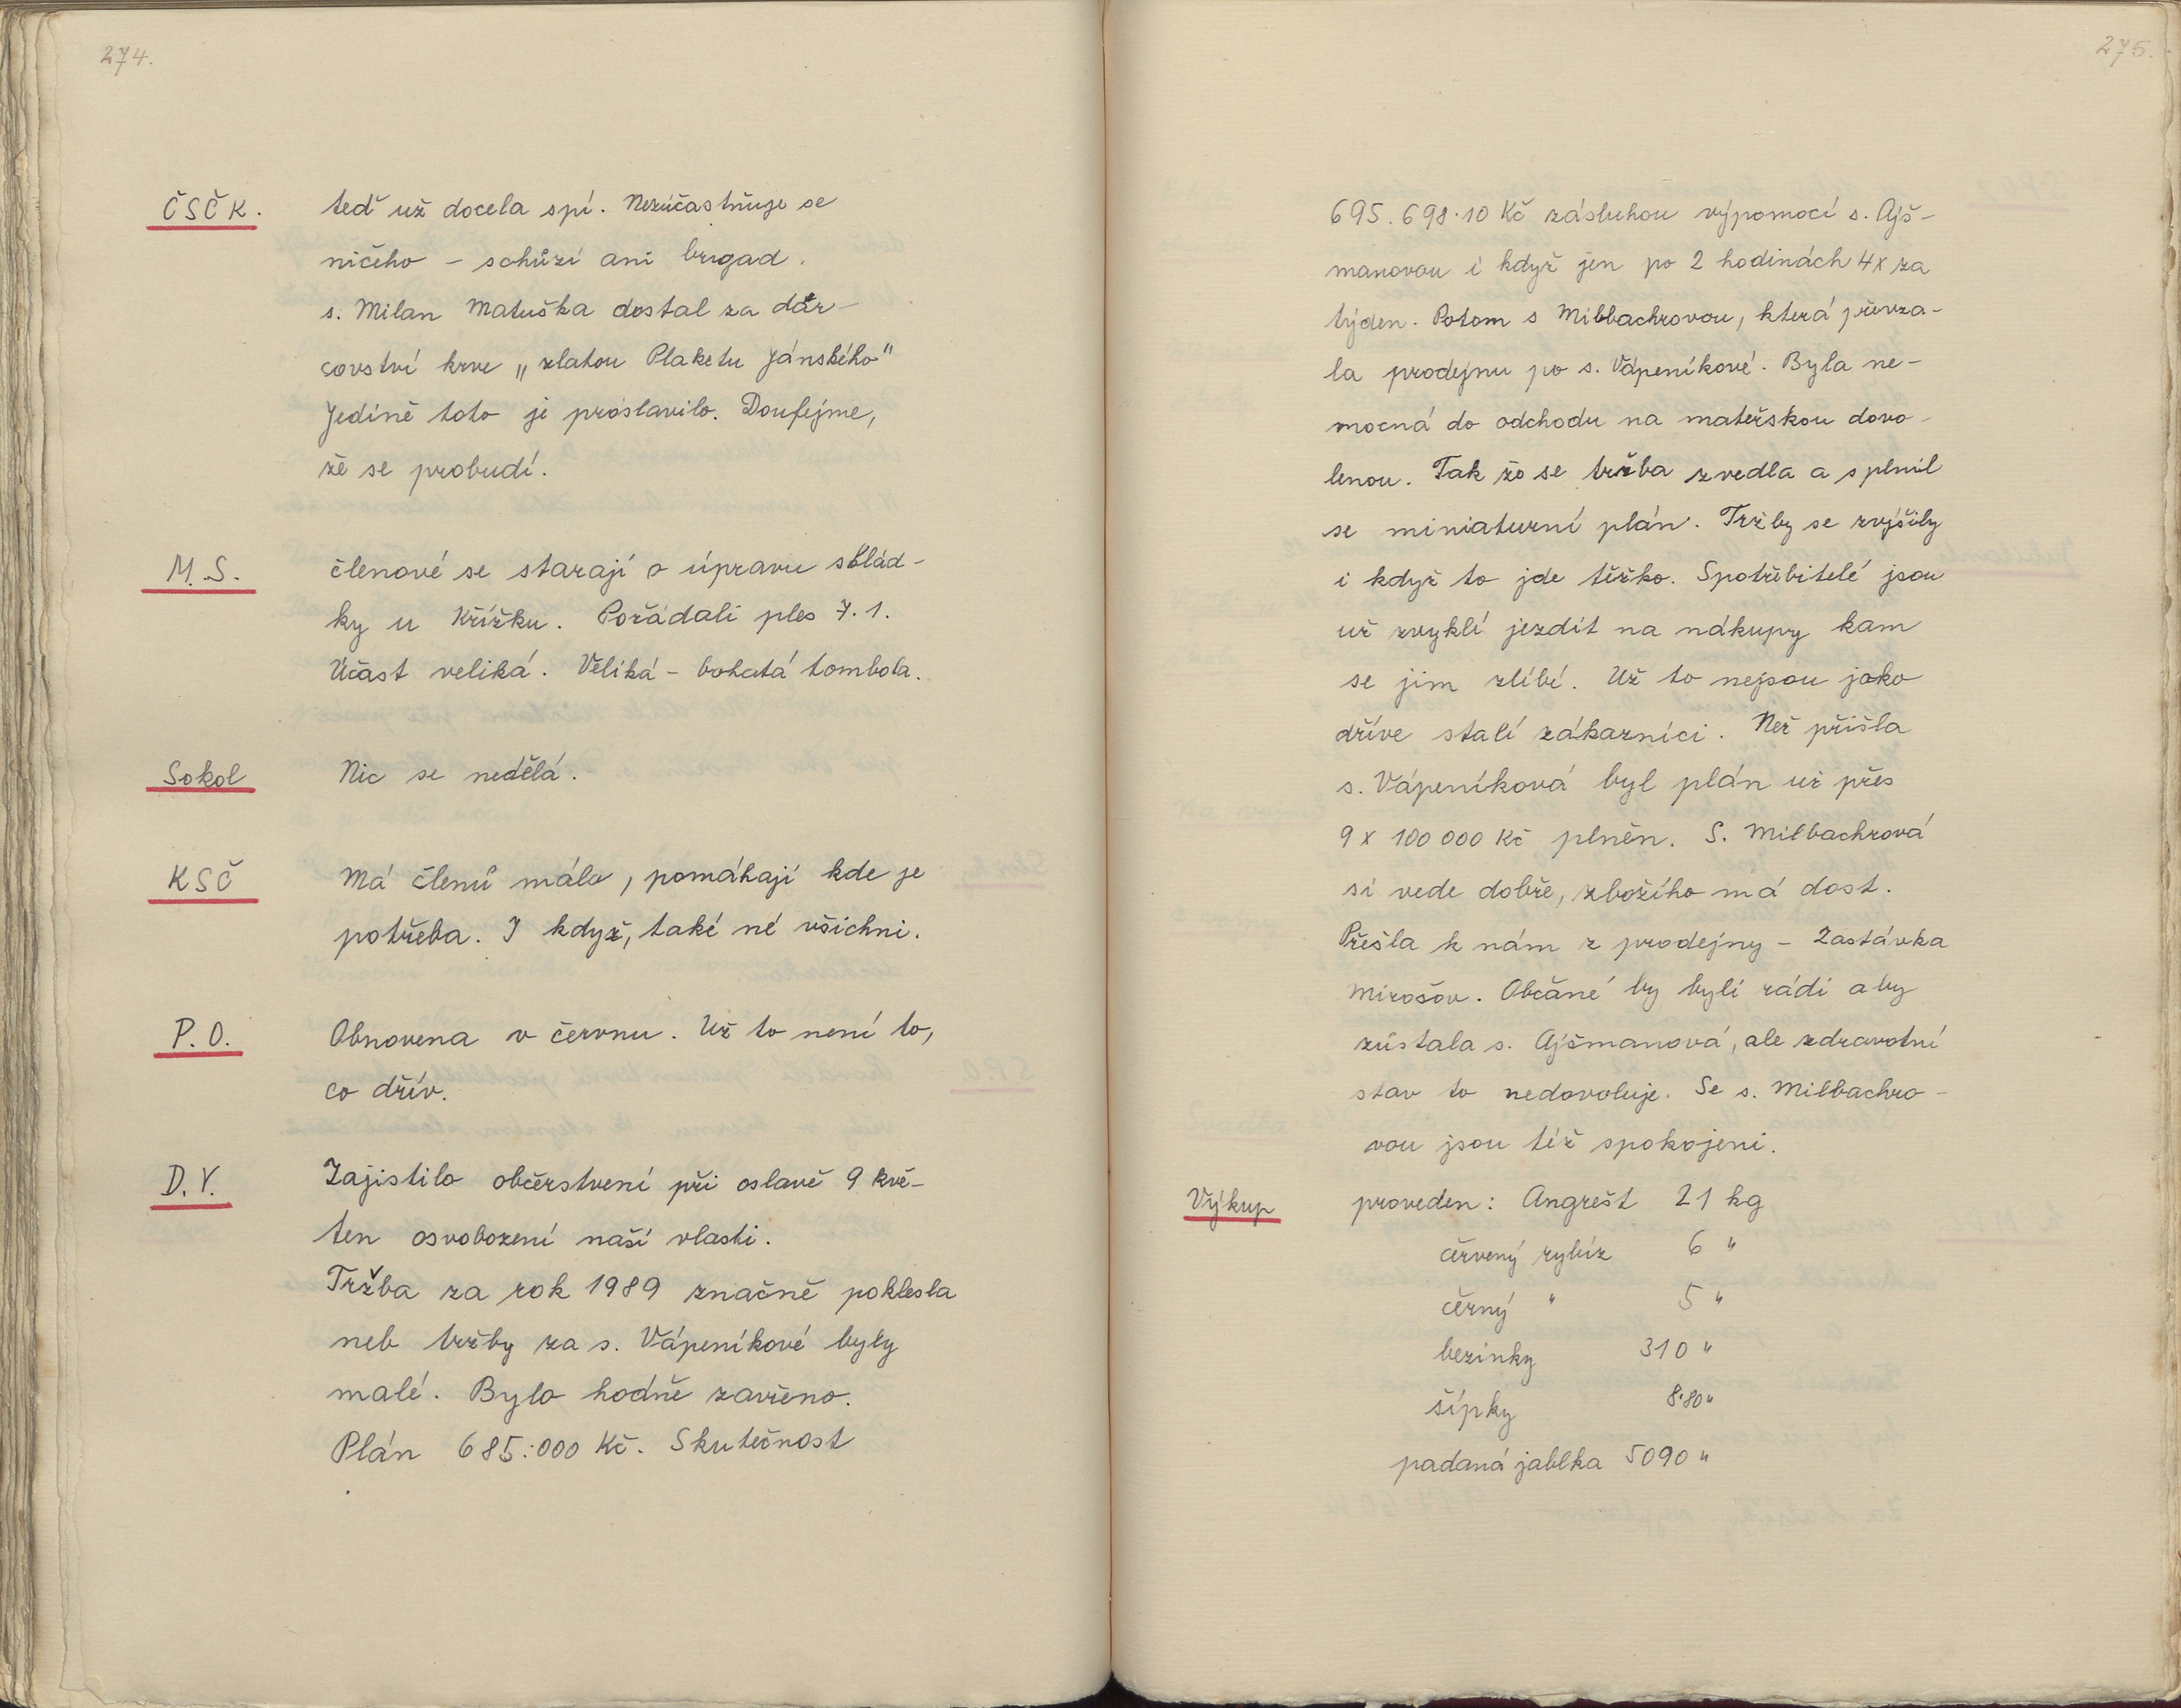 274.
ČSČK. teď už docela spí. Nezúčastňuje se
ničeho - schůzí ani brigad.
s. Milan Matuška dostal za dár-
covství krve „zlatou Plaketu Jánského"
Jedině toto je proslavilo. Doufejme,
že se probudí.
M.S. členové se starají o úpravu sklád-
ky u Křížku. Pořádali ples 7.1.
Účast veliká. Veliká - bohatá tombola.
Sokol Nic se nedělá.
KSČ Má členů málo, pomáhají kde je
potřeba. I když, také né všichni.
P.O. Obnovena v červnu. Už to není to,
co dřív.
D.V. Zajistilo občerstvení při oslavě 9 kvě-
ten osvobození naší vlasti.
Tržba za rok 1989 značně poklesla
neb tržby za s. Vápeníkové byly
malé. Bylo hodně zavřeno.
Plán 685.000 Kč. Skutečnost
275.
695.698.10 Kč zásluhou výpomocí s. Ajš-
manovou i když jen po 2 hodinách 4x za
týden. Potom s Milbachrovou, která převza-
la prodejnu po s. Vápeníkové. Byla ne-
mocná do odchodu na mateřskou dovo-
lenou. Tak že se tržba zvedla a splnil
se miniaturní plán. Tržby se zvýšily
i když to jde těžko. Spotřebitelé jsou
už zvyklí jezdit na nákupy kam
se jim zlíbí. Už to nejsou jako
dříve stalí zákazníci. Než přišla
s. Vápeníková byl plán už přes
9 x 100 000 Kč plněn. S. Milbachrová
si vede dobře, zbožího má dost.
Přešla k nám z prodejny - Zastávka
Mirošov. Občané by byli rádi aby
zůstala s. Ajšmanová, ale zdravotní
stav to nedovoluje. Se s. Milbachro-
vou jsou též spokojeni.
Výkup proveden: Angrešt 21 kg
červený rybíz 6 "
černý " 5 "
bezinky 310 "
šípky 8.80 "
padaná jablka 5090 "